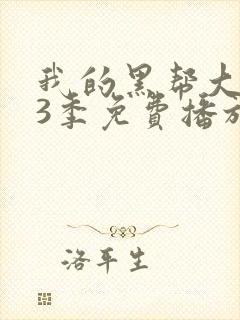 我的黑帮大
3季免費播放
洛平生